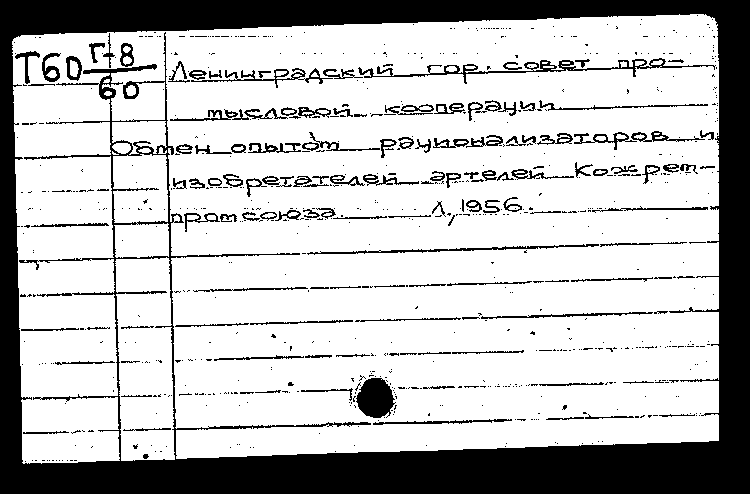 Т60 Г-8/60
Ленинградский гор. совет про-
мысловой кооперации
Обмен опытом рационализаторов и
изобретателей артелей Кожрем-
промсоюза Л, 1956.